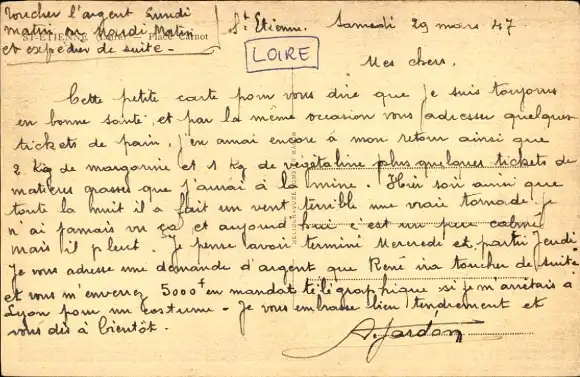 Toucher l'argent Lundi
matin ou Mardi Matin
ST-ETIENNE (Loire) — Place Carnot
et expédier de suite -
St Etienne. Samedi 29 mars 47
LOIRE
Mes chers.
Cette petite carte pour vous dire que je suis toujours
en bonne santé et par la même occasion vous adresser quelques
tickets de pain, j'en aurai encore à mon retour ainsi que
2 Kg de margarine et 1 Kg de végétaline plus quelques tickets de
matières grasses que j'aurai à la mine. Hier soir ainsi que
toute la nuit il a fait un vent terrible une vraie tornade je
n'ai jamais vu ça et aujourd'hui c'est un peu calmé
mais il pleut. Je pense avoir terminé Mercredi et partir Jeudi.
Je vous adresse une demande d'argent que René ira toucher de suite
et vous m'enverrez 5000f en mandat télégraphique si je m'arrêtais à
Lyon pour un costume - Je vous embrasse bien tendrement et
vous dis à bientôt.